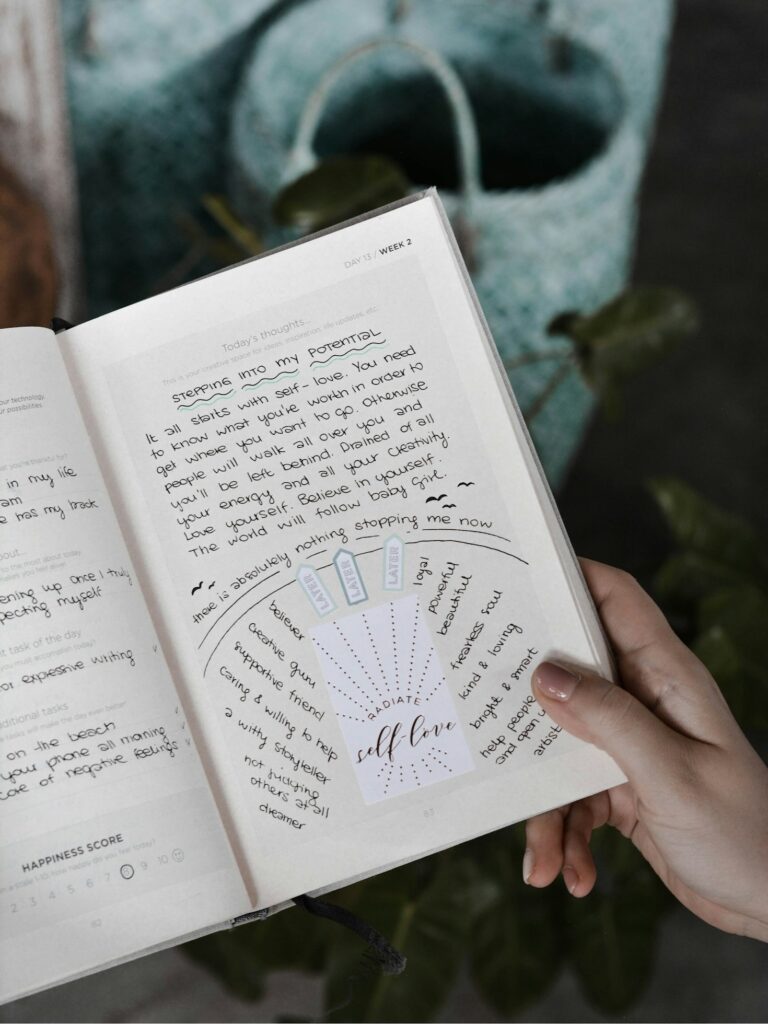 our technology.
our possibilities.
in my life
am
e has my back
to the most about today
ening up once I truly
pecting myself
task of the day
or expressive writing
ditional tasks
on the beach
your phone all morning
care of negative feelings
HAPPINESS SCORE
2 · 3 · 4 · 5 · 6 · 7 · 8 · 9 · 10
82
DAY 13 / WEEK 2
Today's thoughts...
This is your creative space for ideas, inspiration, life updates, etc.
STEPPING INTO MY POTENTIAL
It all starts with self-love. You need
to know what you're worth in order to
get where you want to go. Otherwise
people will walk all over you and
you'll be left behind. Drained of all
your energy and all your creativity.
Love yourself. Believe in yourself.
The world will follow baby girl.
there is absolutely nothing stopping me now
LATER
LATER
LATER
believer
creative guru
supportive friend
caring & willing to help
a witty storyteller
not judging
others at all
dreamer
RADIATE
self-love
loyal
powerful
beautiful
fearless soul
kind & loving
bright & smart
help people
and open u
artist
83